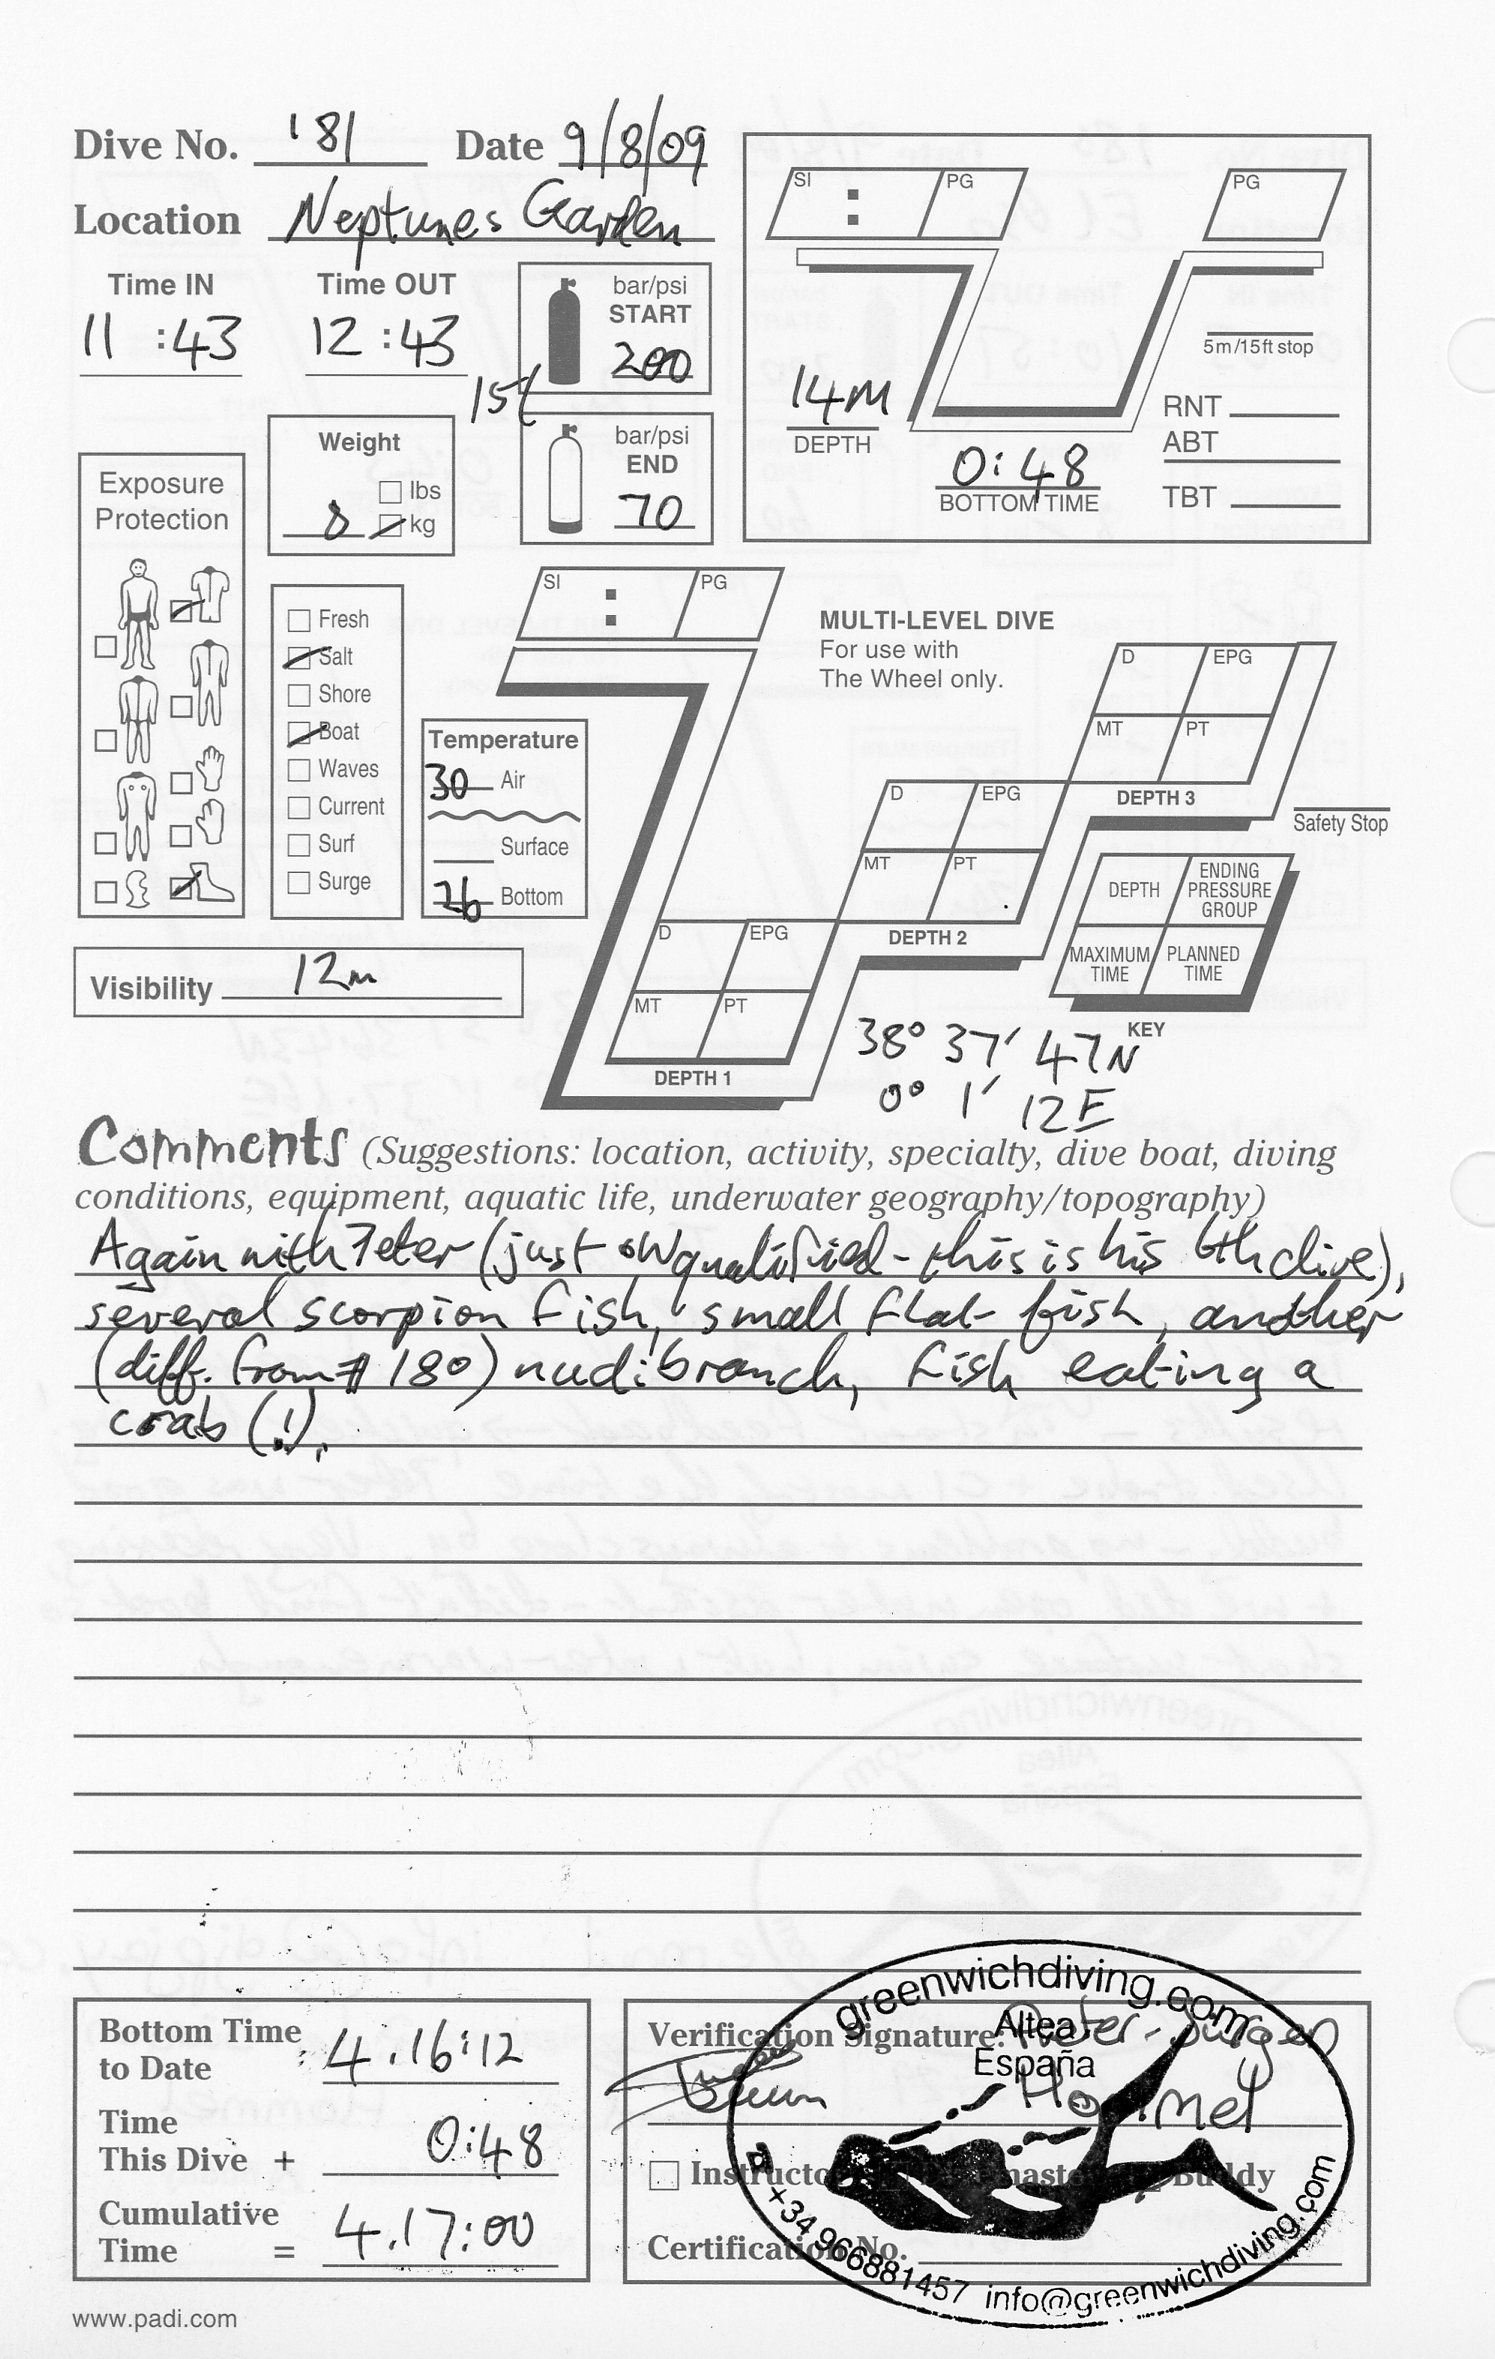 Dive No. 181 Date 9/8/09
Location Neptunes Garden
Time IN Time OUT
11:43 12:43
bar/psi
START
200
15l
bar/psi
END
70
SI : PG PG
5m/15ft stop
14M
DEPTH
0:48
BOTTOM TIME
RNT
ABT
TBT
Weight
lbs
8 kg
Exposure
Protection
Fresh
Salt
Shore
Boat
Waves
Current
Surf
Surge
Temperature
30 Air
Surface
26 Bottom
Visibility 12m
SI : PG
MULTI-LEVEL DIVE
For use with
The Wheel only.
D EPG
MT PT
DEPTH 3
Safety Stop
D EPG
MT PT
DEPTH 2
D EPG
MT PT
DEPTH 1
DEPTH ENDING PRESSURE GROUP
MAXIMUM TIME PLANNED TIME
KEY
38° 37' 47N
0° 1' 12E
Comments (Suggestions: location, activity, specialty, dive boat, diving
conditions, equipment, aquatic life, underwater geography/topography)
Again with Peter (just OW qualified - this is his 6th dive),
several scorpion fish, small flat fish, another
(diff. from # 180) nudibranch, fish eating a
crab (!).
Bottom Time
to Date 4.16:12
Time
This Dive + 0:48
Cumulative
Time = 4.17:00
Verification Signature: Peter-Jürgen
Hommel
Instructor Divemaster Buddy
Certification No.
greenwichdiving.com
Altea
España
+34 966881457 info@greenwichdiving.com
www.padi.com